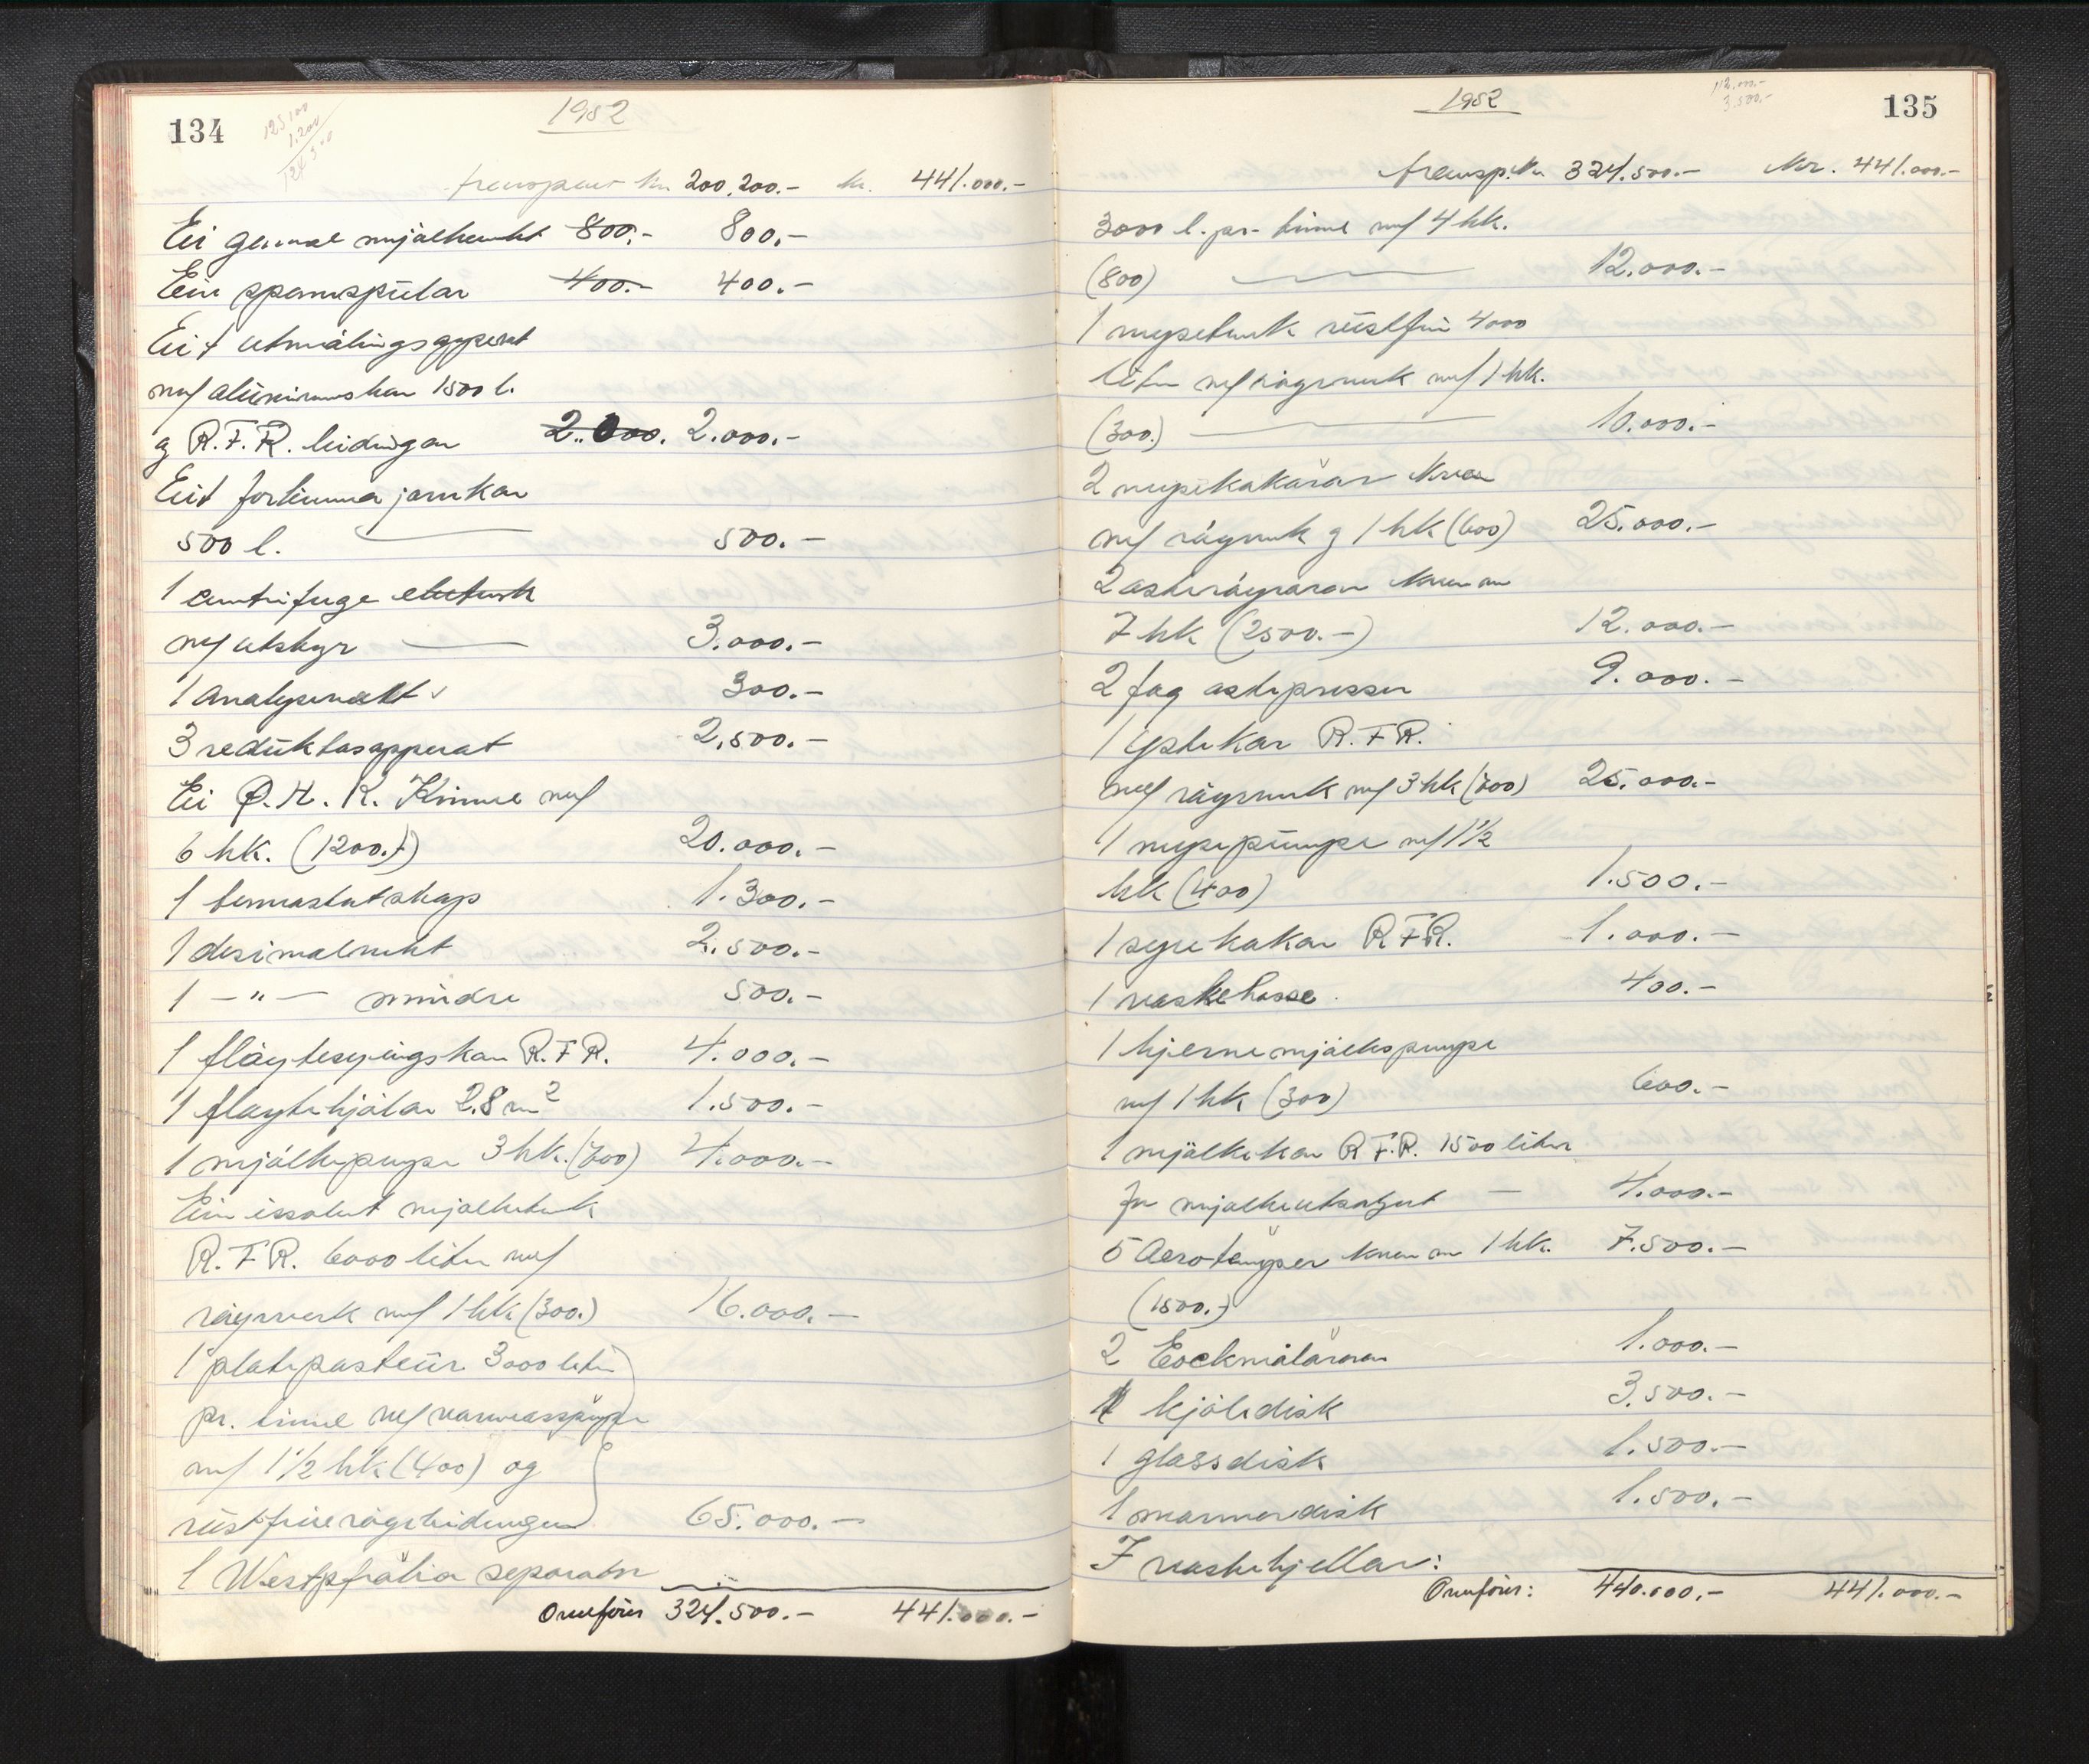 134
125100
1.200
124300
1952
transport kr. 200.200.- kr. 441.000.-
Ei gamal mjølkevekt 800.- 800.-
Ein spannspular 400.- 400.-
Eit utmålingsapperat
m/ aluminiumskar 1500 l.
og R.F.R. leidingar 2.000. 2.000.-
Eit fortinna jarnkar
500 l. 500.-
1 centrifuge elektrisk
m/ utstyr 3.000.-
1 analysevekt 300.-
3 reduktasapperat 2,500.-
Ei Ø.H.K. Kinne m/
6 hk. (1200.-) 20.000.-
1 termostatskap 1.300.-
1 desimalvekt 2.500.-
1 -"- mindre 500.-
1 fløytesyringskar R.F.R. 4.000.-
1 fløytekjølar 2.8 m² 1.500.-
1 mjølkepumpe 3 hk. (700) 4.000.-
Ein issolert mjølketank
R.F.R. 6000 liter m/
rørverk m/ 1 hk (300.) 16.000.-
1 platepasteur 3000 liter
pr. time m/ varmvasspumpe
m/ 1½ hk (400) og
rustfrie rørleidningar 65.000.-
1 Westpfalia separator
Overføres 324.500.- 441.000.-
1952
112.000.-
3.500.-
135
transp. kr. 324.500.- Kr. 441.000.-
3000 l. pr. time m/ 4 hk.
(800) 12.000.-
1 mysetank rustfri 4000
liter m/ rørverk m/ 1 hk.
(300.) 10.000.-
2 mysekokarar kvar
m/ rørverk og 1 hk (600) 25.000.-
2 osterørarar kvar on
7 hk (2500.-) 12.000.-
2 fag ostepresser 9.000.-
1 ystekar R.F.R.
m/ rørverk m/ 3 hk (700) 25.000.-
1 mysepumpe m/ 1½
hk (400) 1.500.-
1 syrekokar R.F.R. 1.000.-
1 vaskekasse 400.-
1 kjernemjølkspumpe
m/ 1 hk (300) 600.-
1 mjølkekar R.F.R. 1500 liter
for mjølkeutsalget 4.000.-
5 Aerotemper kvar on 1 hk. 7.500.-
(1500.-)
2 1.000.-
1 kjøledisk 3.500.-
1 glassdisk 1.500.-
1 marmordisk 1.500.-
7 vaskekjellar:
Overføres: 440.000.- 441.000.-